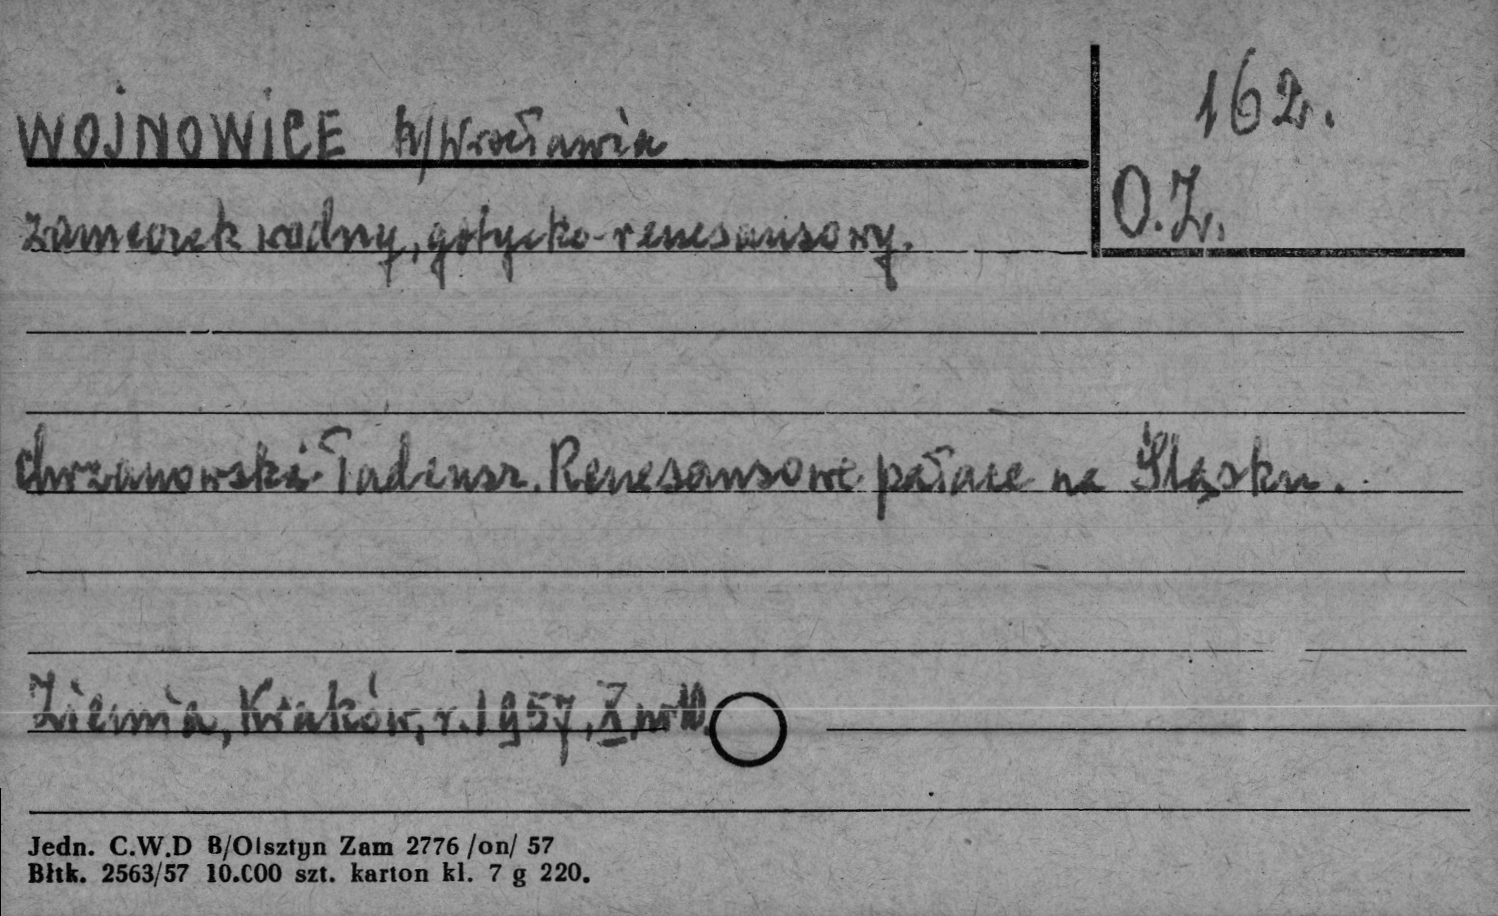 WOJNOWICE k/Wrocławia
162.
O.Z.
zameczek wodny, gotycko-renesansowy.
Chrzanowski Tadeusz. Renesansowe pałace na Śląsku.
Ziemia, Kraków, r. 1957, X, nr 10.
Jedn. C.W.D B/Olsztyn Zam 2776 /on/ 57
Błtk. 2563/57 10.000 szt. karton kl. 7 g 220.